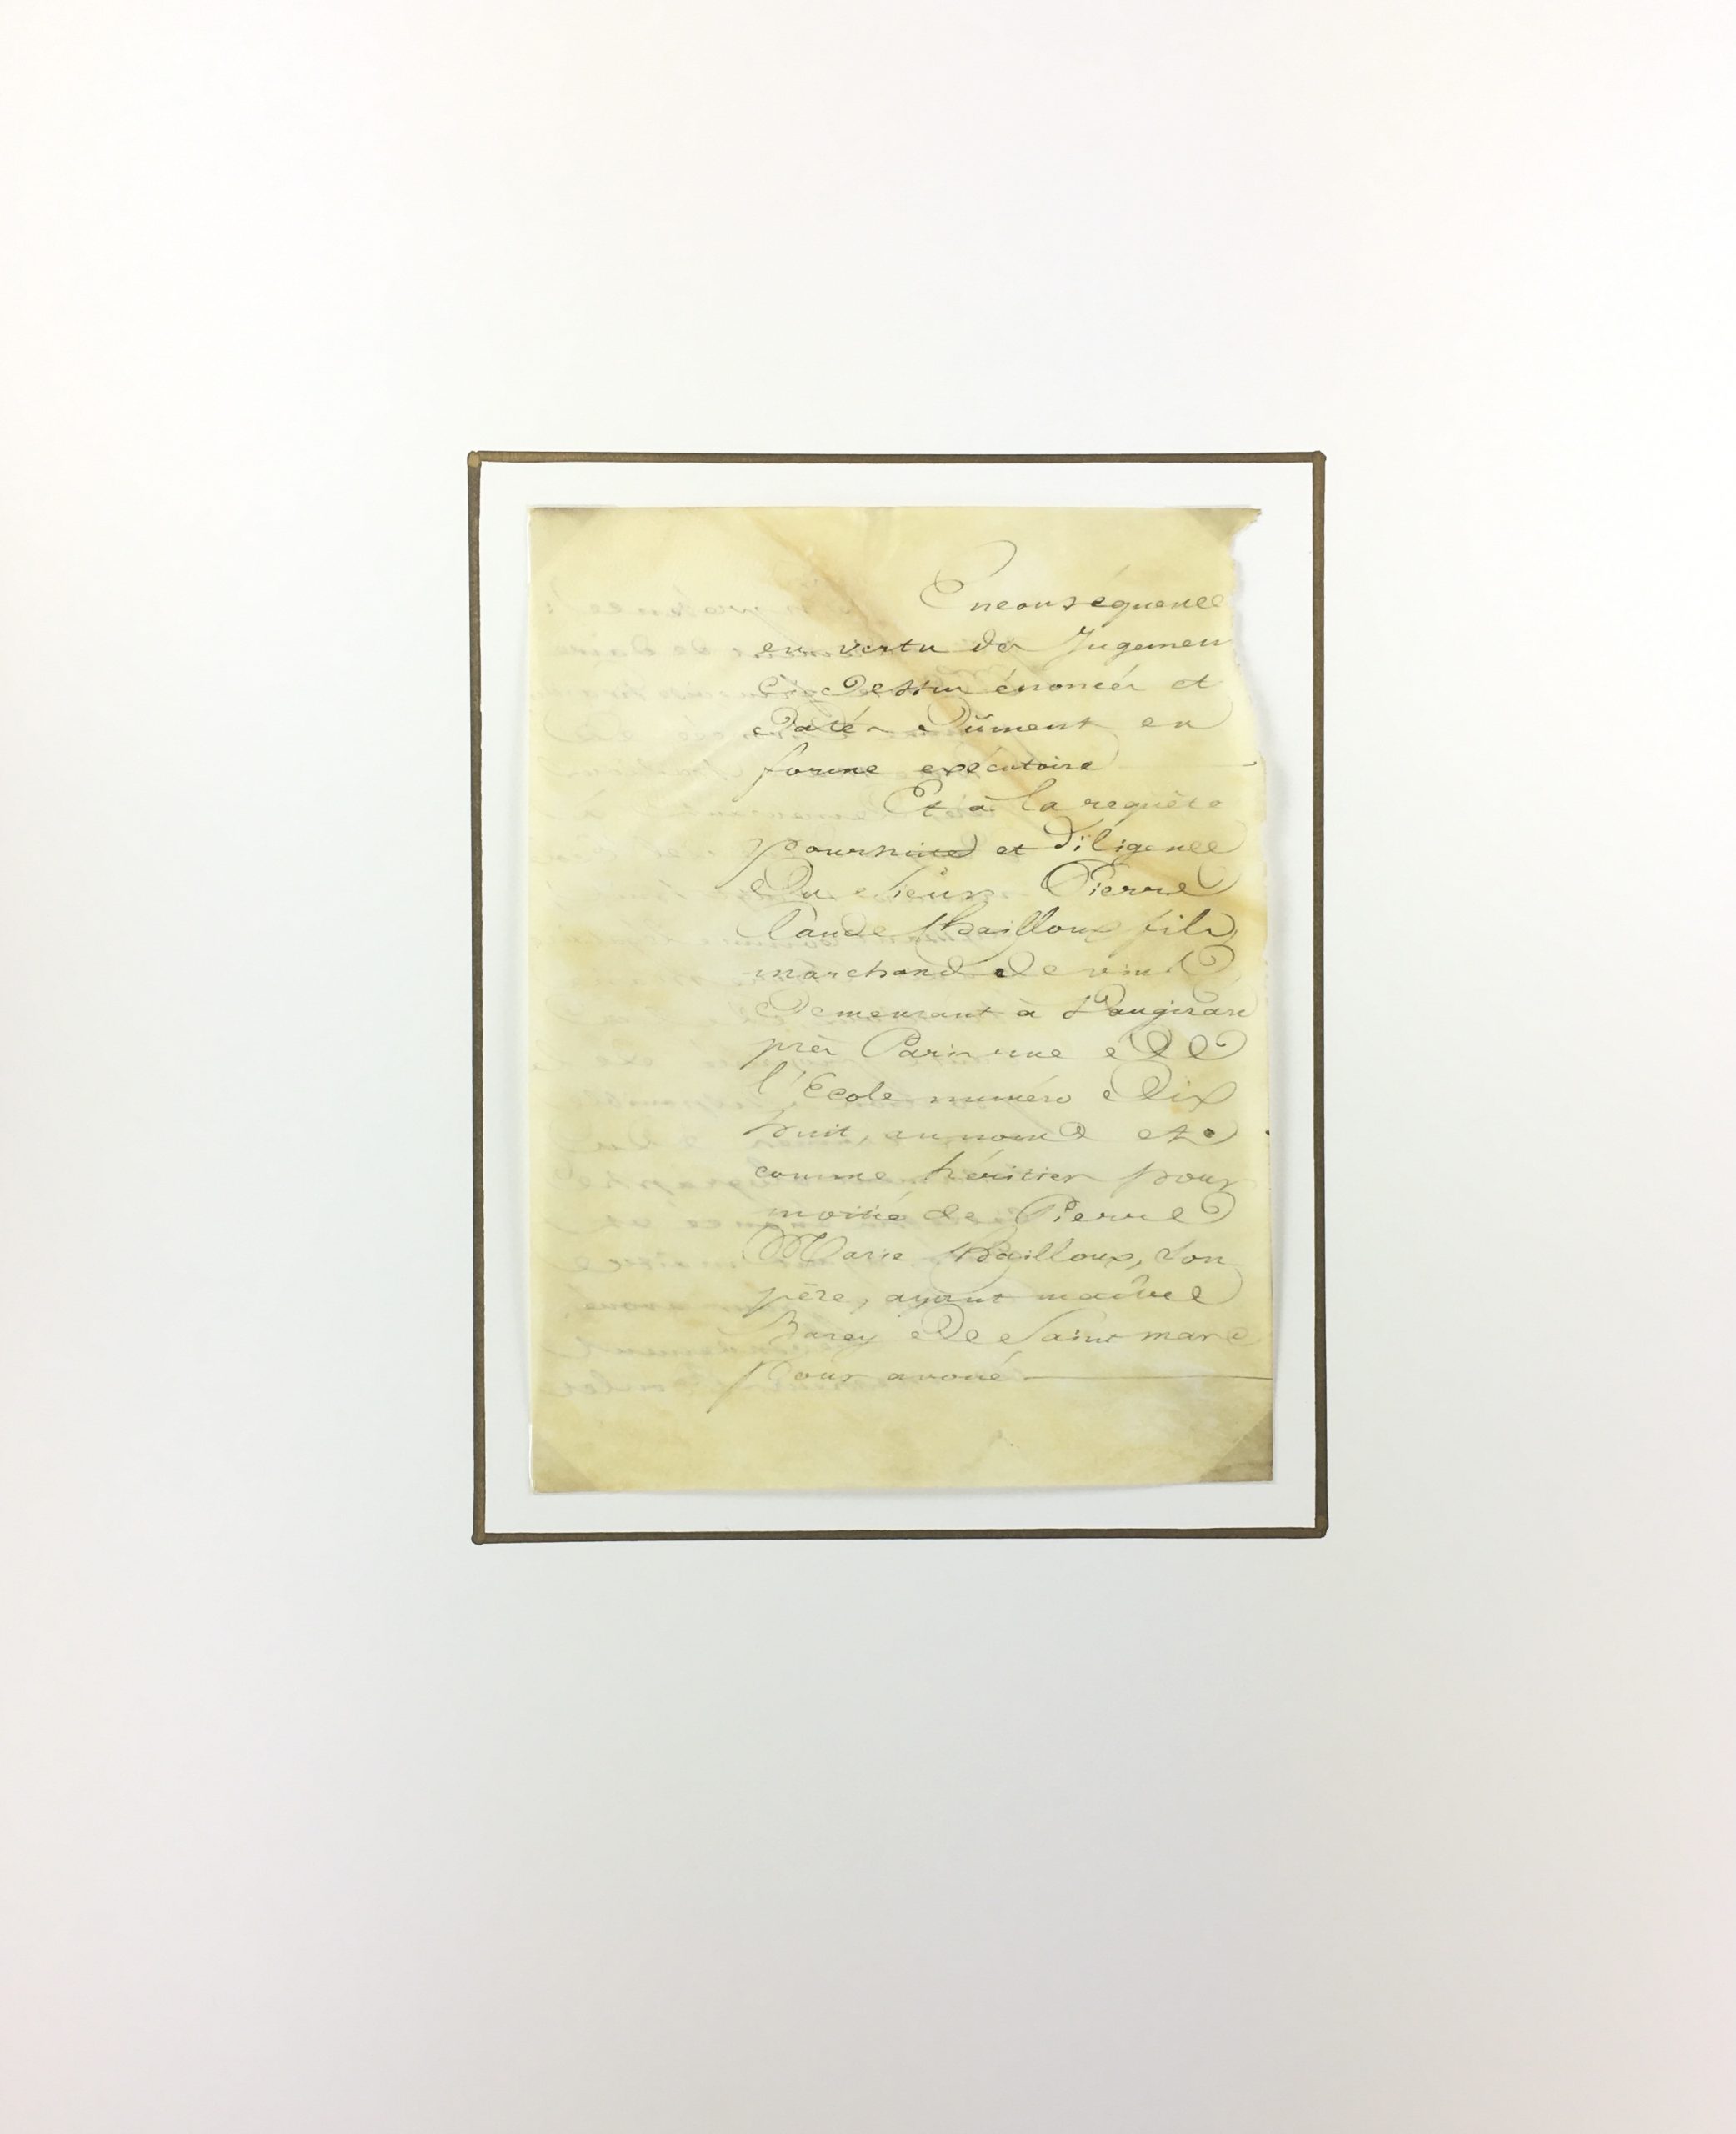 En conséquence
en vertu des Jugemen
Ci-Dessus énoncés et
Datés Dûment en
forme exécutoire
Et à la requête
poursuite et Diligence
Du Sieur Pierre
Claude Bailloux fils
marchand de vin
Demeurant à Vaugirard
près Paris rue de
l'Ecole numéro Dix
huit, au nom et
comme héritier pour
moitié de Pierre
Marie Bailloux, Son
père, ayant maître
De Saint marc
Pour avoué